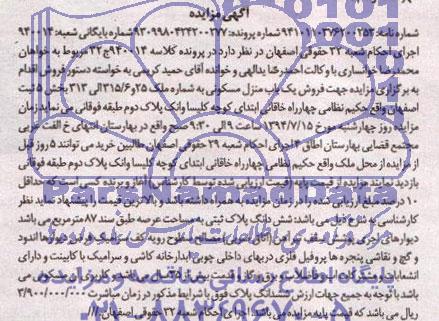 آگهی مزایده
شماره نامه: ۹۴۱۰۱۱۰۳۷۶۲۰۰۲۵۳ شماره پرونده: ۹۳۰۹۹۸۰۴۲۴۲۰۰۲۷۷ شماره بایگانی شعبه: ۹۴۰۰۱۴
اجرای احکام شعبه ۳۲ حقوقی اصفهان در نظر دارد در پرونده کلاسه ۹۴۰۰۱۴ ج ۳۲ مربوط به خواهان
محمدرضا خوانساری با وکالت احمدرضا یدالهی و خوانده آقای حمید کریمی به خواسته دستور فروش اقدام
به برگزاری مزایده جهت فروش یک باب منزل مسکونی به شماره ملک ۲۵و۳۱۵/۶ الی ۳۱۳ بخش ۵ ثبت
اصفهان واقع حکیم نظامی چهارراه خاقانی ابتدای کوچه کلیسا وانک پلاک دوم طبقه فوقانی می نماید زمان
مزایده روز چهارشنبه مورخ ۱۳۹۴/۷/۱۵ ساعت ۹ الی ۹:۳۰ صبح واقع در بهارستان انتهای خ الفت غربی
مجتمع قضایی بهارستان اطاق ۴ اجرای احکام شعبه ۲۹ حقوقی اصفهان طالبین خرید می توانند ۵ روز قبل
از مزایده از محل ملک واقع حکیم نظامی چهارراه خاقانی ابتدای کوچه کلیسا وانک پلاک دوم طبقه فوقانی
بازدید نمایند مزایده از قیمت پایه (قیمت ارزیابی شده توسط کارشناس) آغاز و برنده کسی است که حداقل
۱۰ درصد مبلغ ارزیابی شده را در زمان مزایده به همراه داشته باشد و بالاترین قیمت را پیشنهاد نماید نظر
کارشناسی به شرح ذیل می باشد: شش دانگ پلاک ثبتی به مساحت عرصه طبق سند ۸۷ مترمربع می باشد
دیوارهای آجری پوشش سقف تیرآهن کف سرامیک دیوارها اندود
و گچ و نقاشی پنجره ها پروفیل فلزی دربهای داخلی چوبی آبدارخانه کاشی و سرامیک با کابینت و دارای
انشعابات مسکونی می
باشد با توجه به جمیع جهات ارزش ششدانگ پلاک فوق با شرایط مذکور در زمان مباشرت ۳/۹۰۰/۰۰۰/۰۰۰
ریال می باشد که قیمت پایه مزایده می باشد. اجرای احکام شعبه ۳۲ حقوقی اصفهان